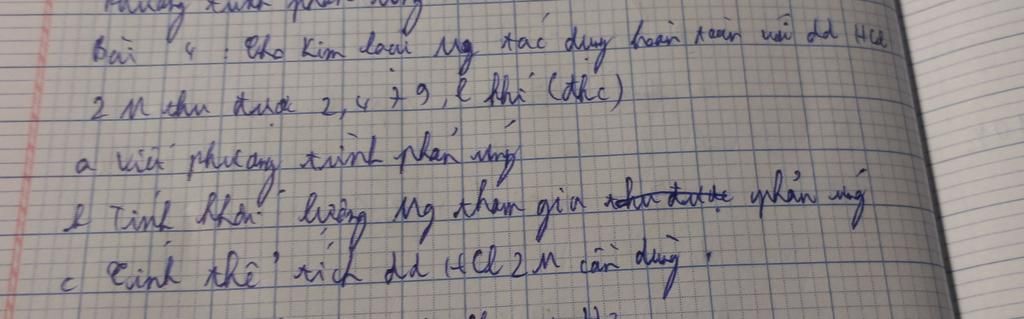 Phương trình phản ứng
Bài 4: Cho kim loại Mg tác dụng hoàn toàn với dd HCl
2 M thu được 2,479, l khí (đkc)
a viết phương trình phản ứng
b Tính khối lượng Mg tham gia thu được phản ứng
c Tính thể tích dd HCl 2M cần dùng.